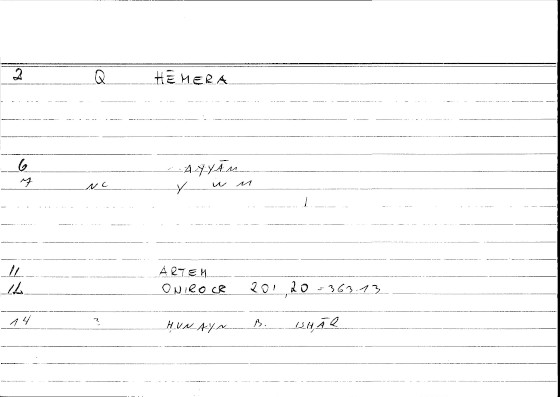 2 Q HĒMERA
6 AYYĀM
7 NC Y W M
11 ARTEM
12 ONIROCR 201,20 = 363.13
14 2 ḤUNAYN B. ISḤĀQ